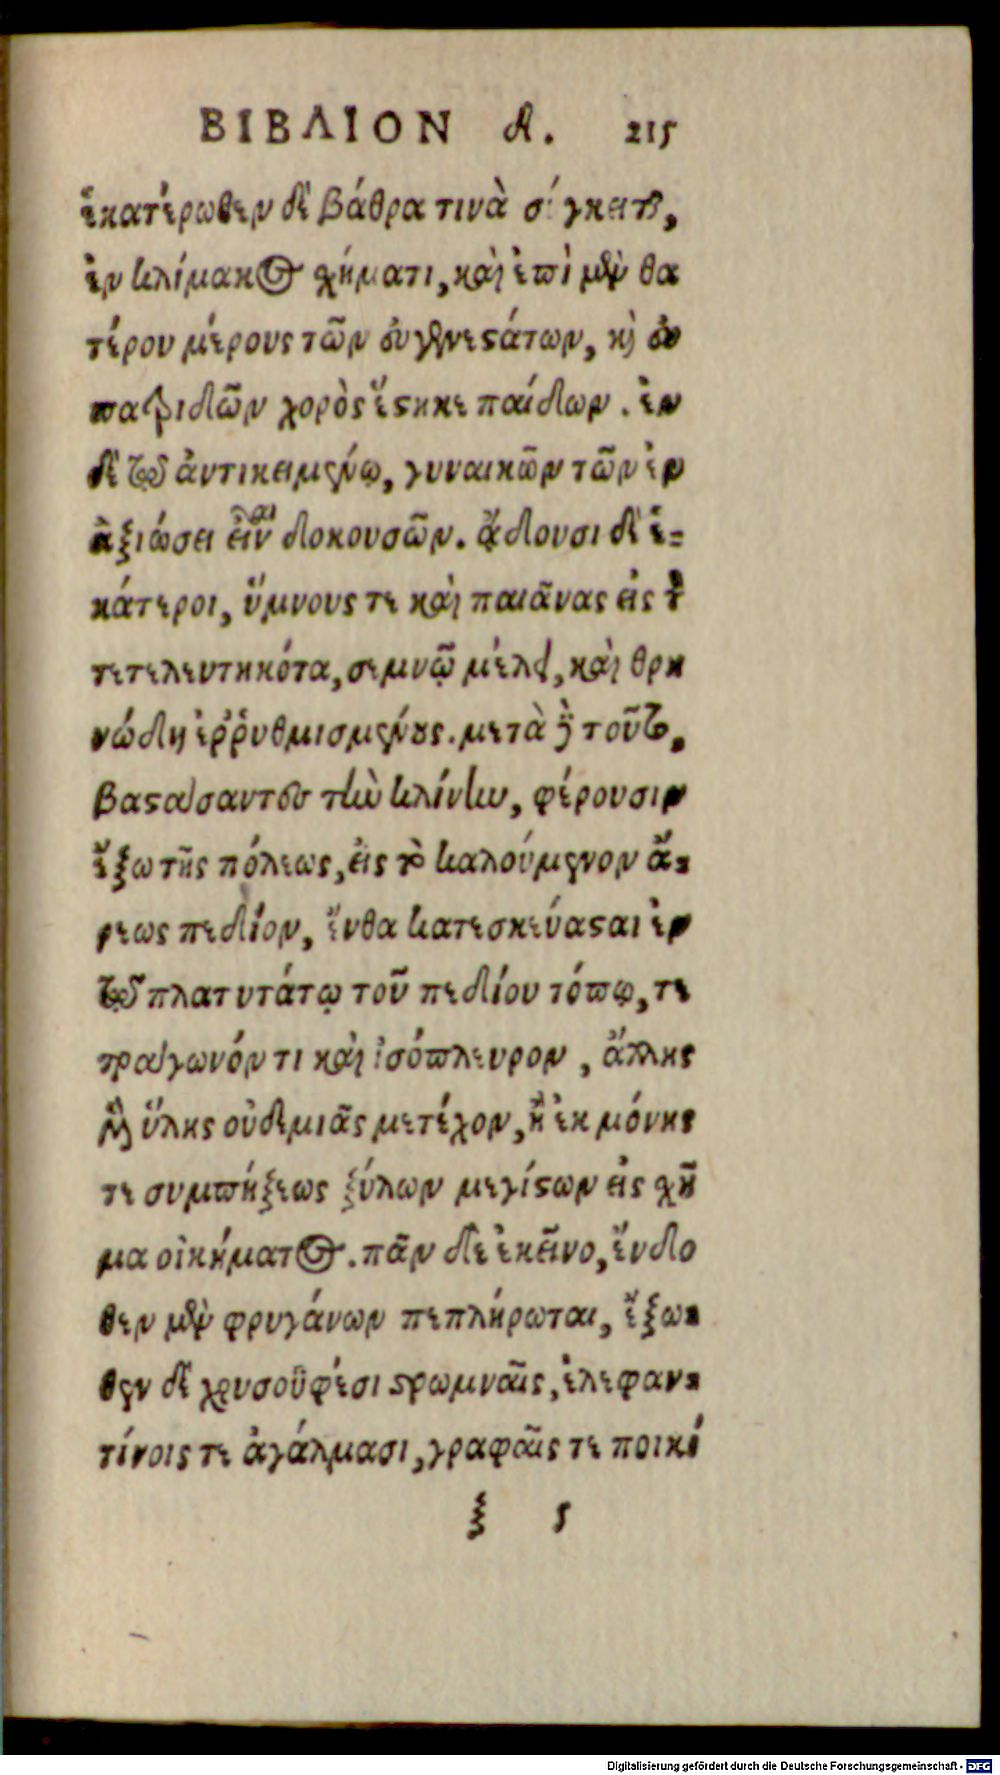 ΒΙΒΛΙΟΝ Δ. 215
ἑκατέρωθεν δὲ βάθρα τινὰ σύγκειται,
ἐν κλίμακος σχήματι, καὶ ἐπὶ μὲν θα
τέρου μέρους τῶν εὐγενεστάτων, καὶ εὐ
πατριδῶν χορὸς ἕστηκε παίδων. ἐν
δὲ τῷ ἀντικειμένῳ, γυναικῶν τῶν ἐν
ἀξιώσει εἶναι δοκουσῶν. ᾄδουσι δὲ ἑ-
κάτεροι, ὕμνους τε καὶ παιᾶνας εἰς τὸν
τετελευτηκότα, σεμνῷ μέλει, καὶ θρη
νώδη ἐῤῥυθμισμένους. μετὰ δὲ τοῦτο,
βαστάσαντες τὴν κλίνην, φέρουσιν
ἔξω τῆς πόλεως, εἰς τὸ καλούμενον ἄ-
ρεως πεδίον, ἔνθα κατεσκεύασται ἐν
τῷ πλατυτάτῳ τοῦ πεδίου τόπῳ, τε
τραγωνόν τι καὶ ἰσόπλευρον, ἄλλης
μὲν ὕλης οὐδεμιᾶς μετέχον, ἢ ἐκ μόνης
τε συμπήξεως ξύλων μεγίστων εἰς σχῆ
μα οἰκήματος. πᾶν δὲ ἐκεῖνο, ἔνδο
θεν μὲν φρυγάνων πεπλήρωται, ἔξω-
θεν δὲ χρυσοϋφέσι στρωμναῖς, ἐλεφαν-
τίνοις τε ἀγάλμασι, γραφαῖς τε ποικί
ξ 5
Digitalisierung gefördert durch die Deutsche Forschungsgemeinschaft - DFG